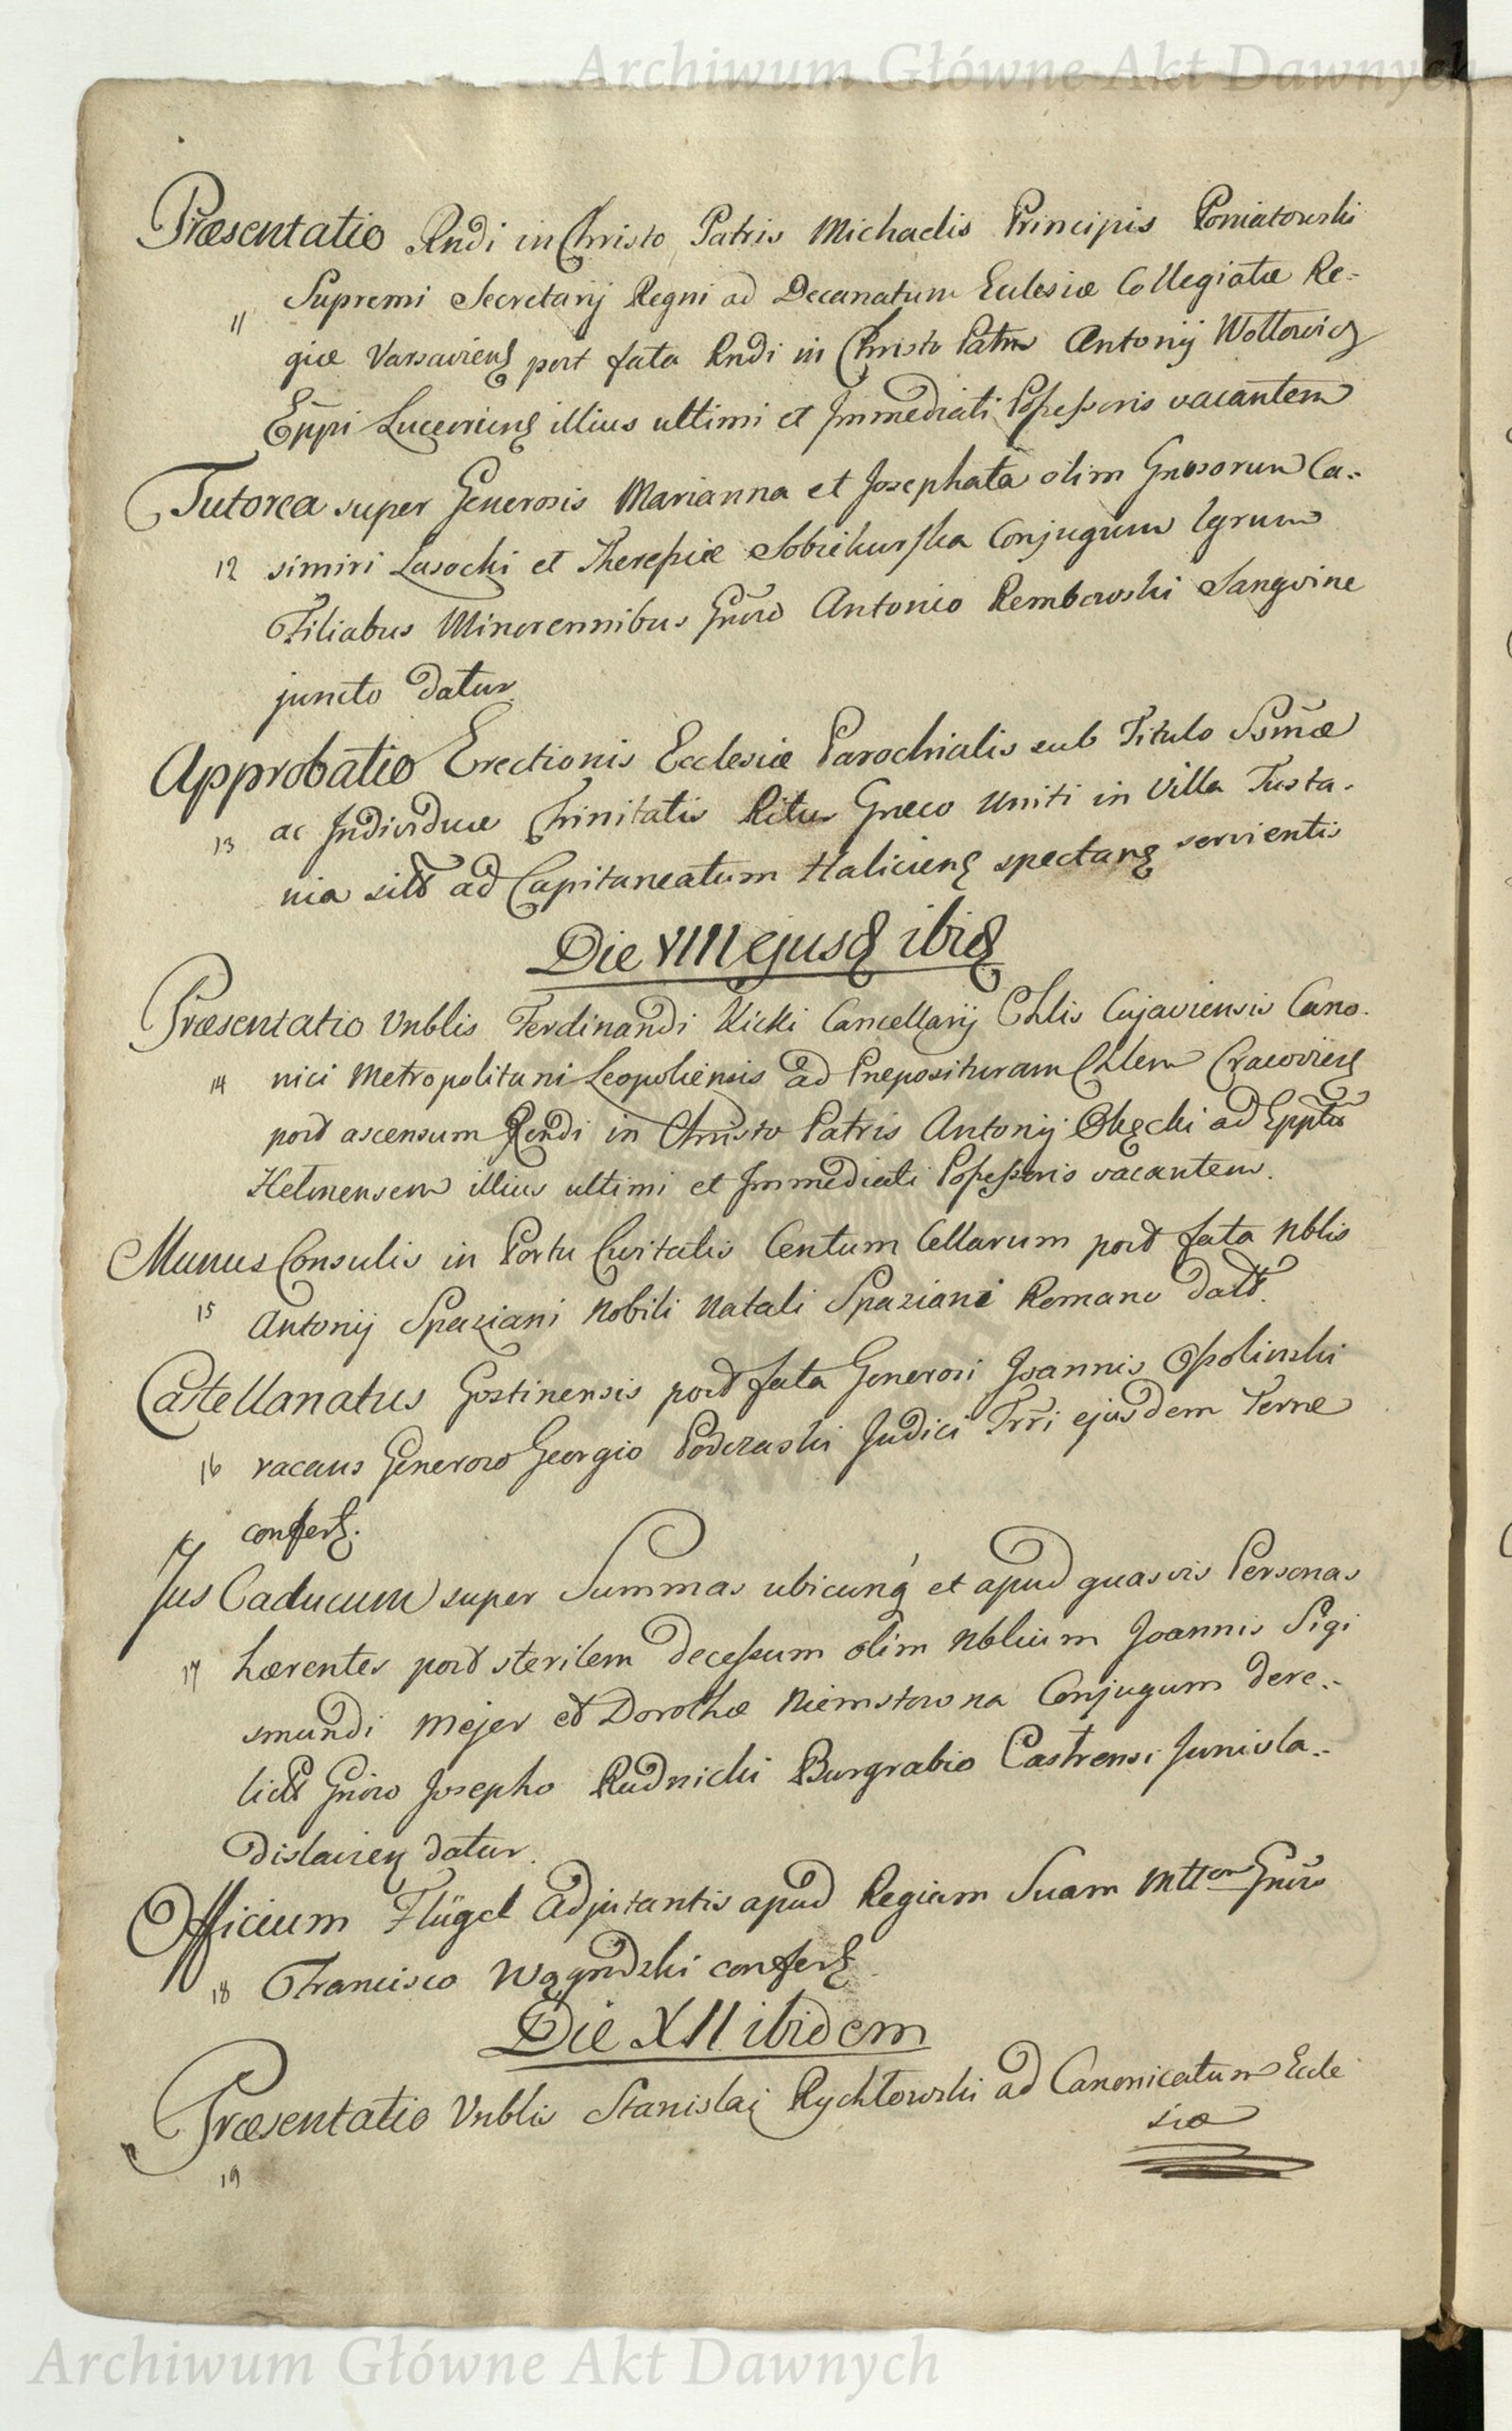 Archiwum Główne Akt Dawnych
Præsentatio Rndi in Christo Patris Michaelis Principis Poniatowski
11 Supremi Secretarij Regni ad Decanatum Eclesiæ Collegiatæ Re-
giæ Varsaviens post fata Rndi in Christo Patris Antonij Wołłowicz
Eppi Luceoriens illius ultimi et Immediati Possessoris vacantem
Tutorea super Generosis Marianna et Josephata olim Gnosorum Ca-
12 simiri Lasocki et Theresiæ Sobiekurska Conjugum lgrum
Filiabus Minorennibus Gnoso Antonio Rembowski Sangvine
juncto datur
Approbatio Erectionis Ecclesiæ Parochialis sub Titulo Ssmæ
13 ac Individuæ Trinitatis Ritus Græco Uniti in Villa Tusta-
nia sitt ad Capitaneatum Haliciens spectans servientis
Die VIII ejusd ibid
Præsentatio Vnblis Ferdinandi Kicki Cancellarij Chlis Cujaviensis Cano-
14 nici Metropolitani Leopoliensis ad Preposituram Chlem Cracoviens
post ascensum Rendi in Christo Patris Antonij Okęcki ad Epptu
Helmensem illius ultimi et Immediati Possessoris vacantem.
Munus Consulis in Portu Civitatis Centum Cellarum post fata Nblis
15 Antonij Spaziani Nobili Natali Spaziani Romano datt.
Castellanatus Gostinensis post fata Generosi Joannis Opolinski
16 vacans Generoso Georgio Podczaski Judici Trri ejusdem Terræ
confert.
Jus Caducum super Summas ubicunq et apud quasvis Personas
17 hærentes post sterilem decessum olim Nblium Joannis Sigi
smundi Mejer et Dorothæ Niemstowna Conjugum dere-
lictt Gnoso Josepho Rudnicki Burgrabio Castrensi Junivla-
dislavien datur.
Officium Flügel Adjutantis apud Regiam Suam Mttem Gnoso
18 Francisco Wągrodzki confert
Die XII ibidem
Præsentatio Vnblis Stanislai Rychłowski ad Canonicatum Eccle
siæ
19
Archiwum Główne Akt Dawnych